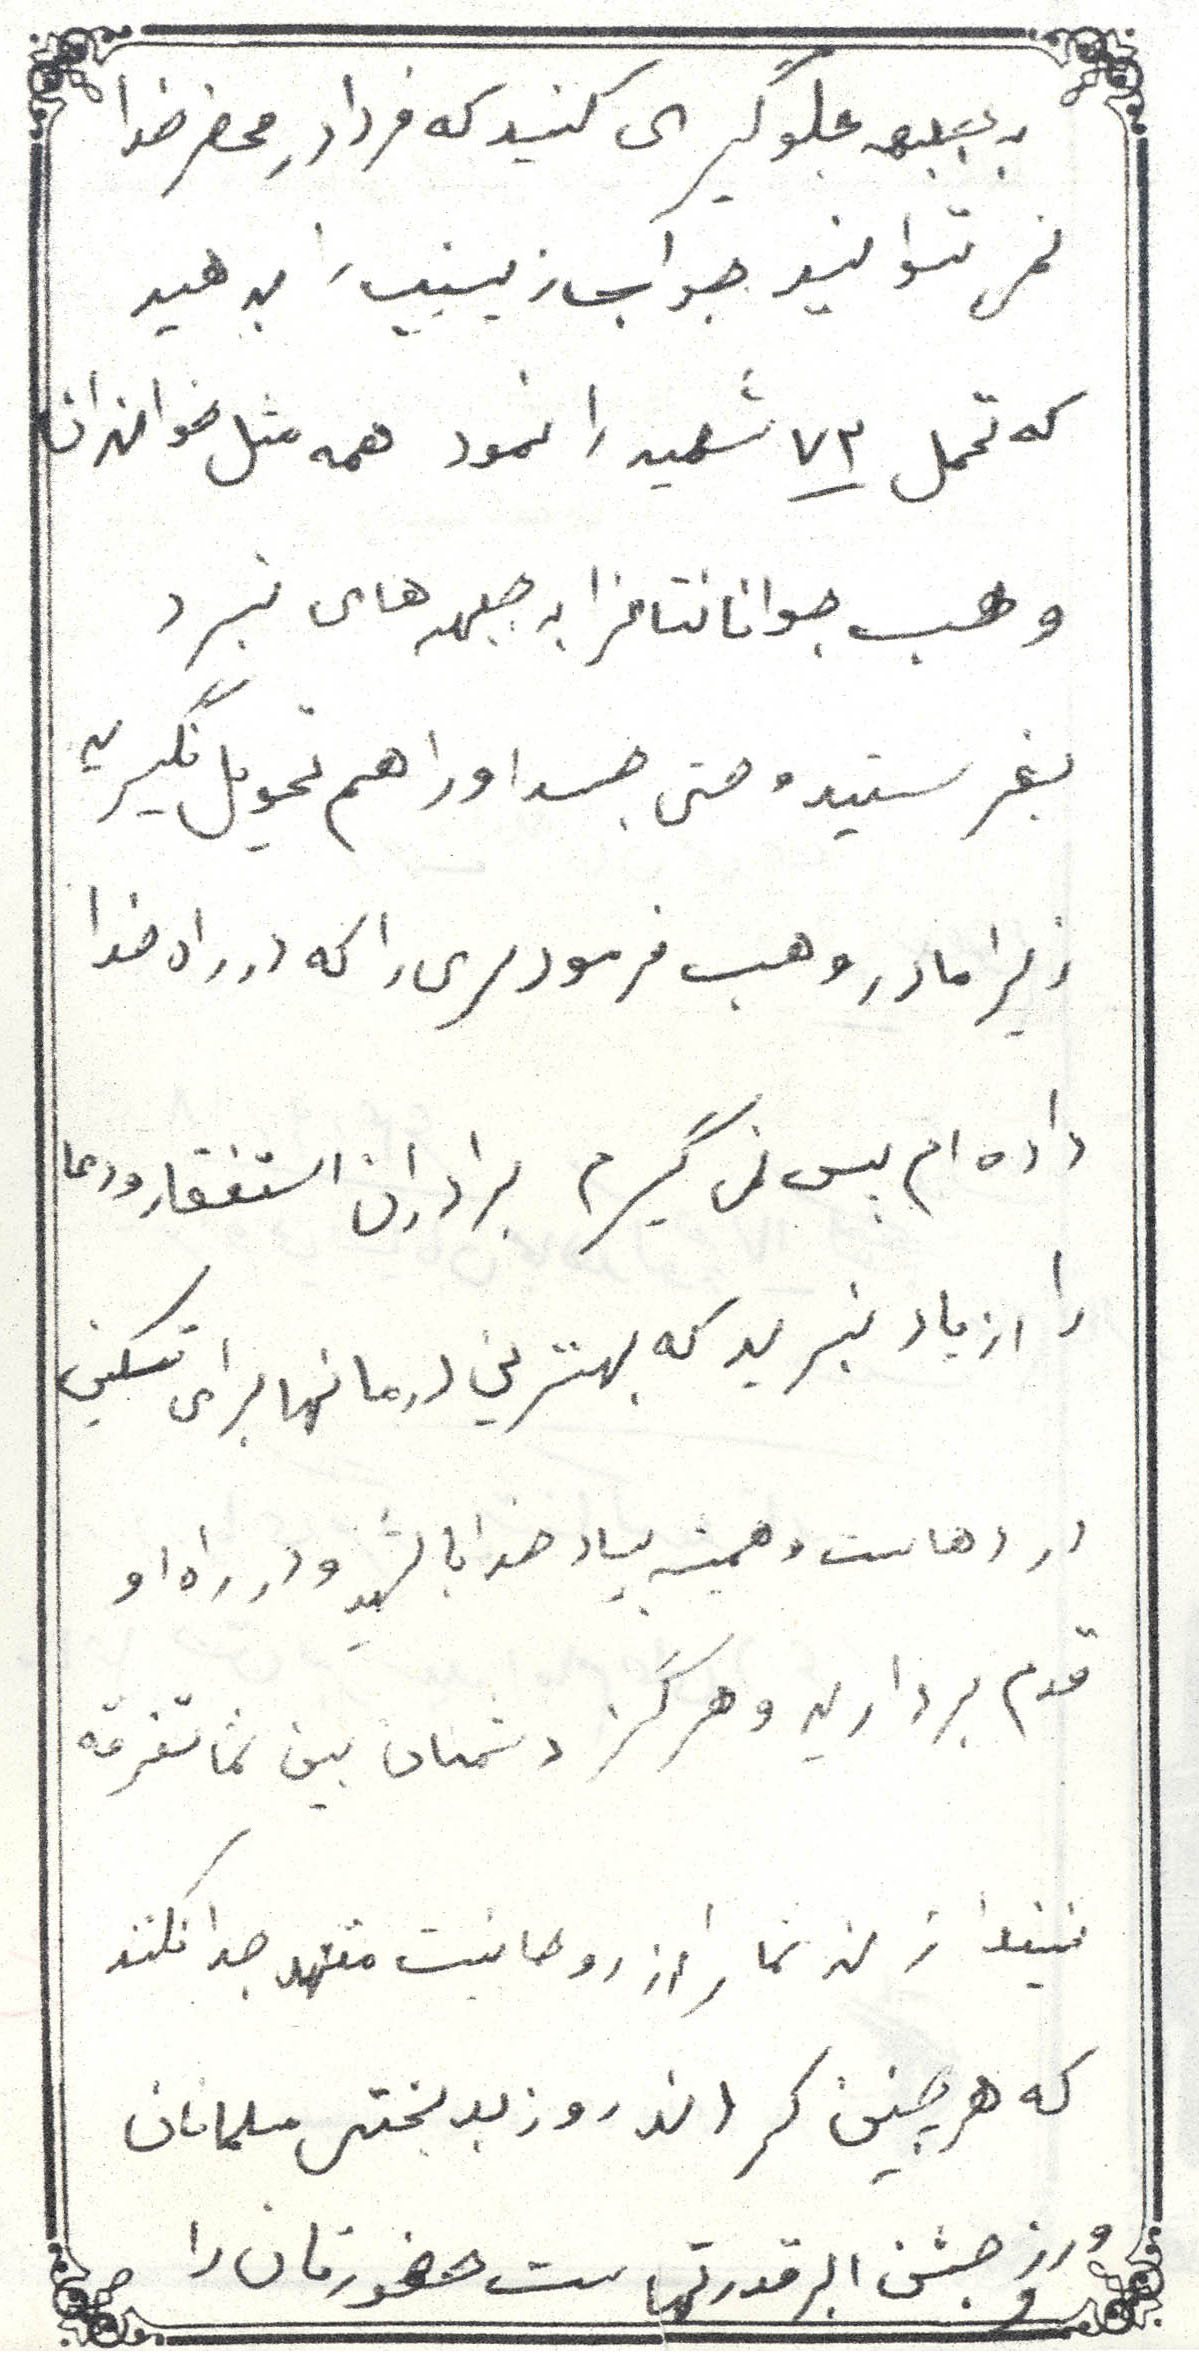 به جبهه جلوگیری کنید که فردا در محضر خدا
نمی توانید جواب زینب را بدهید
که تحمل ۷۲ شهید را نمود همه مثل خواهران
وهب جوانانتانرا به جبهه های نبرد
بفرستید و حتی جسد او را هم تحویل نگیرید
زیرا مادر وهب فرمود سری را که در راه خدا
داده ام پس نمی گیرم برادران استغفار و دعا
را از یاد نبرید که بهترین درمانها برای تسکین
دردهاست و همیشه بیاد خدا باشید و در راه او
قدم بردارید و هرگز دشمنان بین شما تفرقه
نیندازند شما را از روحانیت متعهد جدا نکنند
که هر چنین کردند روز بدبختی مسلمانان
و روز جشن ابر قدرتهاست حضورتان را